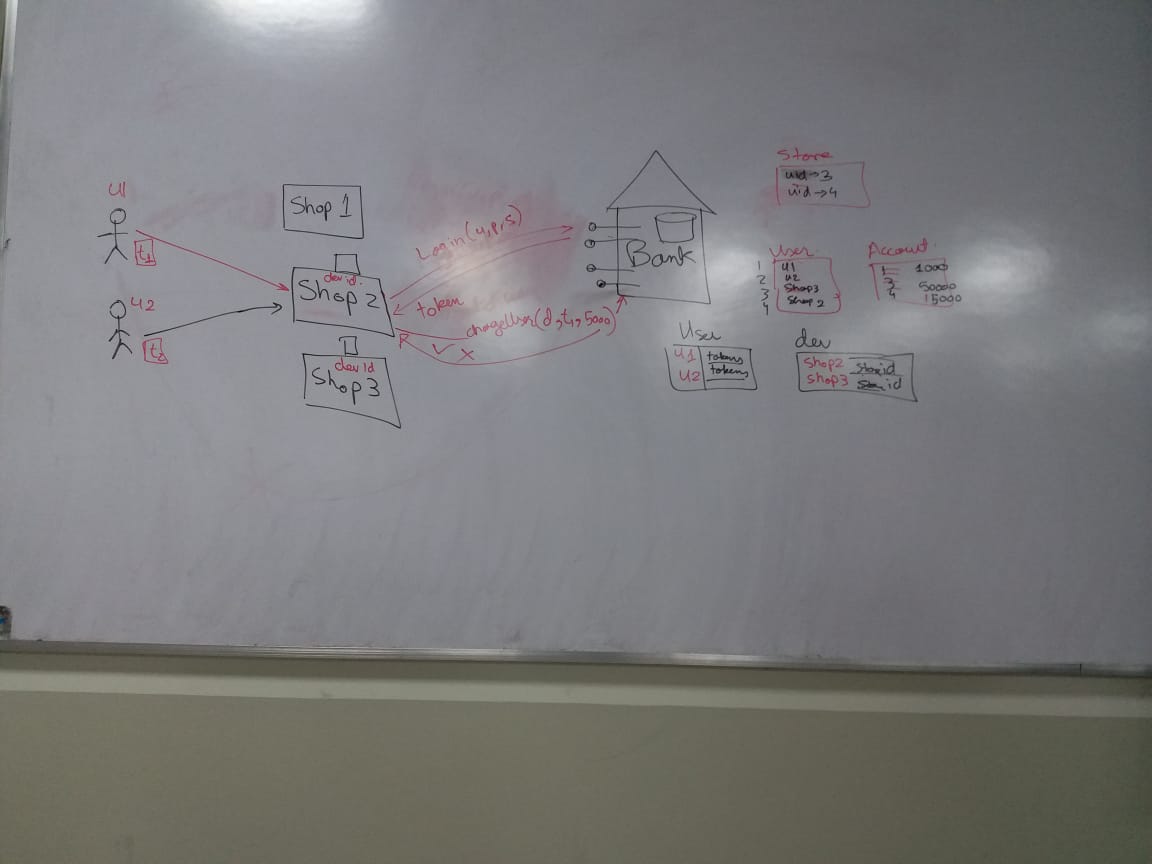 u1
t1
u2
t2
Shop 1
dev id.
Shop 2
dev id
Shop 3
Login(u,p,s)
token
chargeUser(d,t1,5000)
R ✓ x
Bank
Store
uid → 3
uid → 4
User
1 u1
2 u2
3 Shop3
4 Shop 2
Account
1 1000
3 50000
4 15000
User
u1 tokens
u2 tokens
dev
Shop2 Storeid
Shop3 id